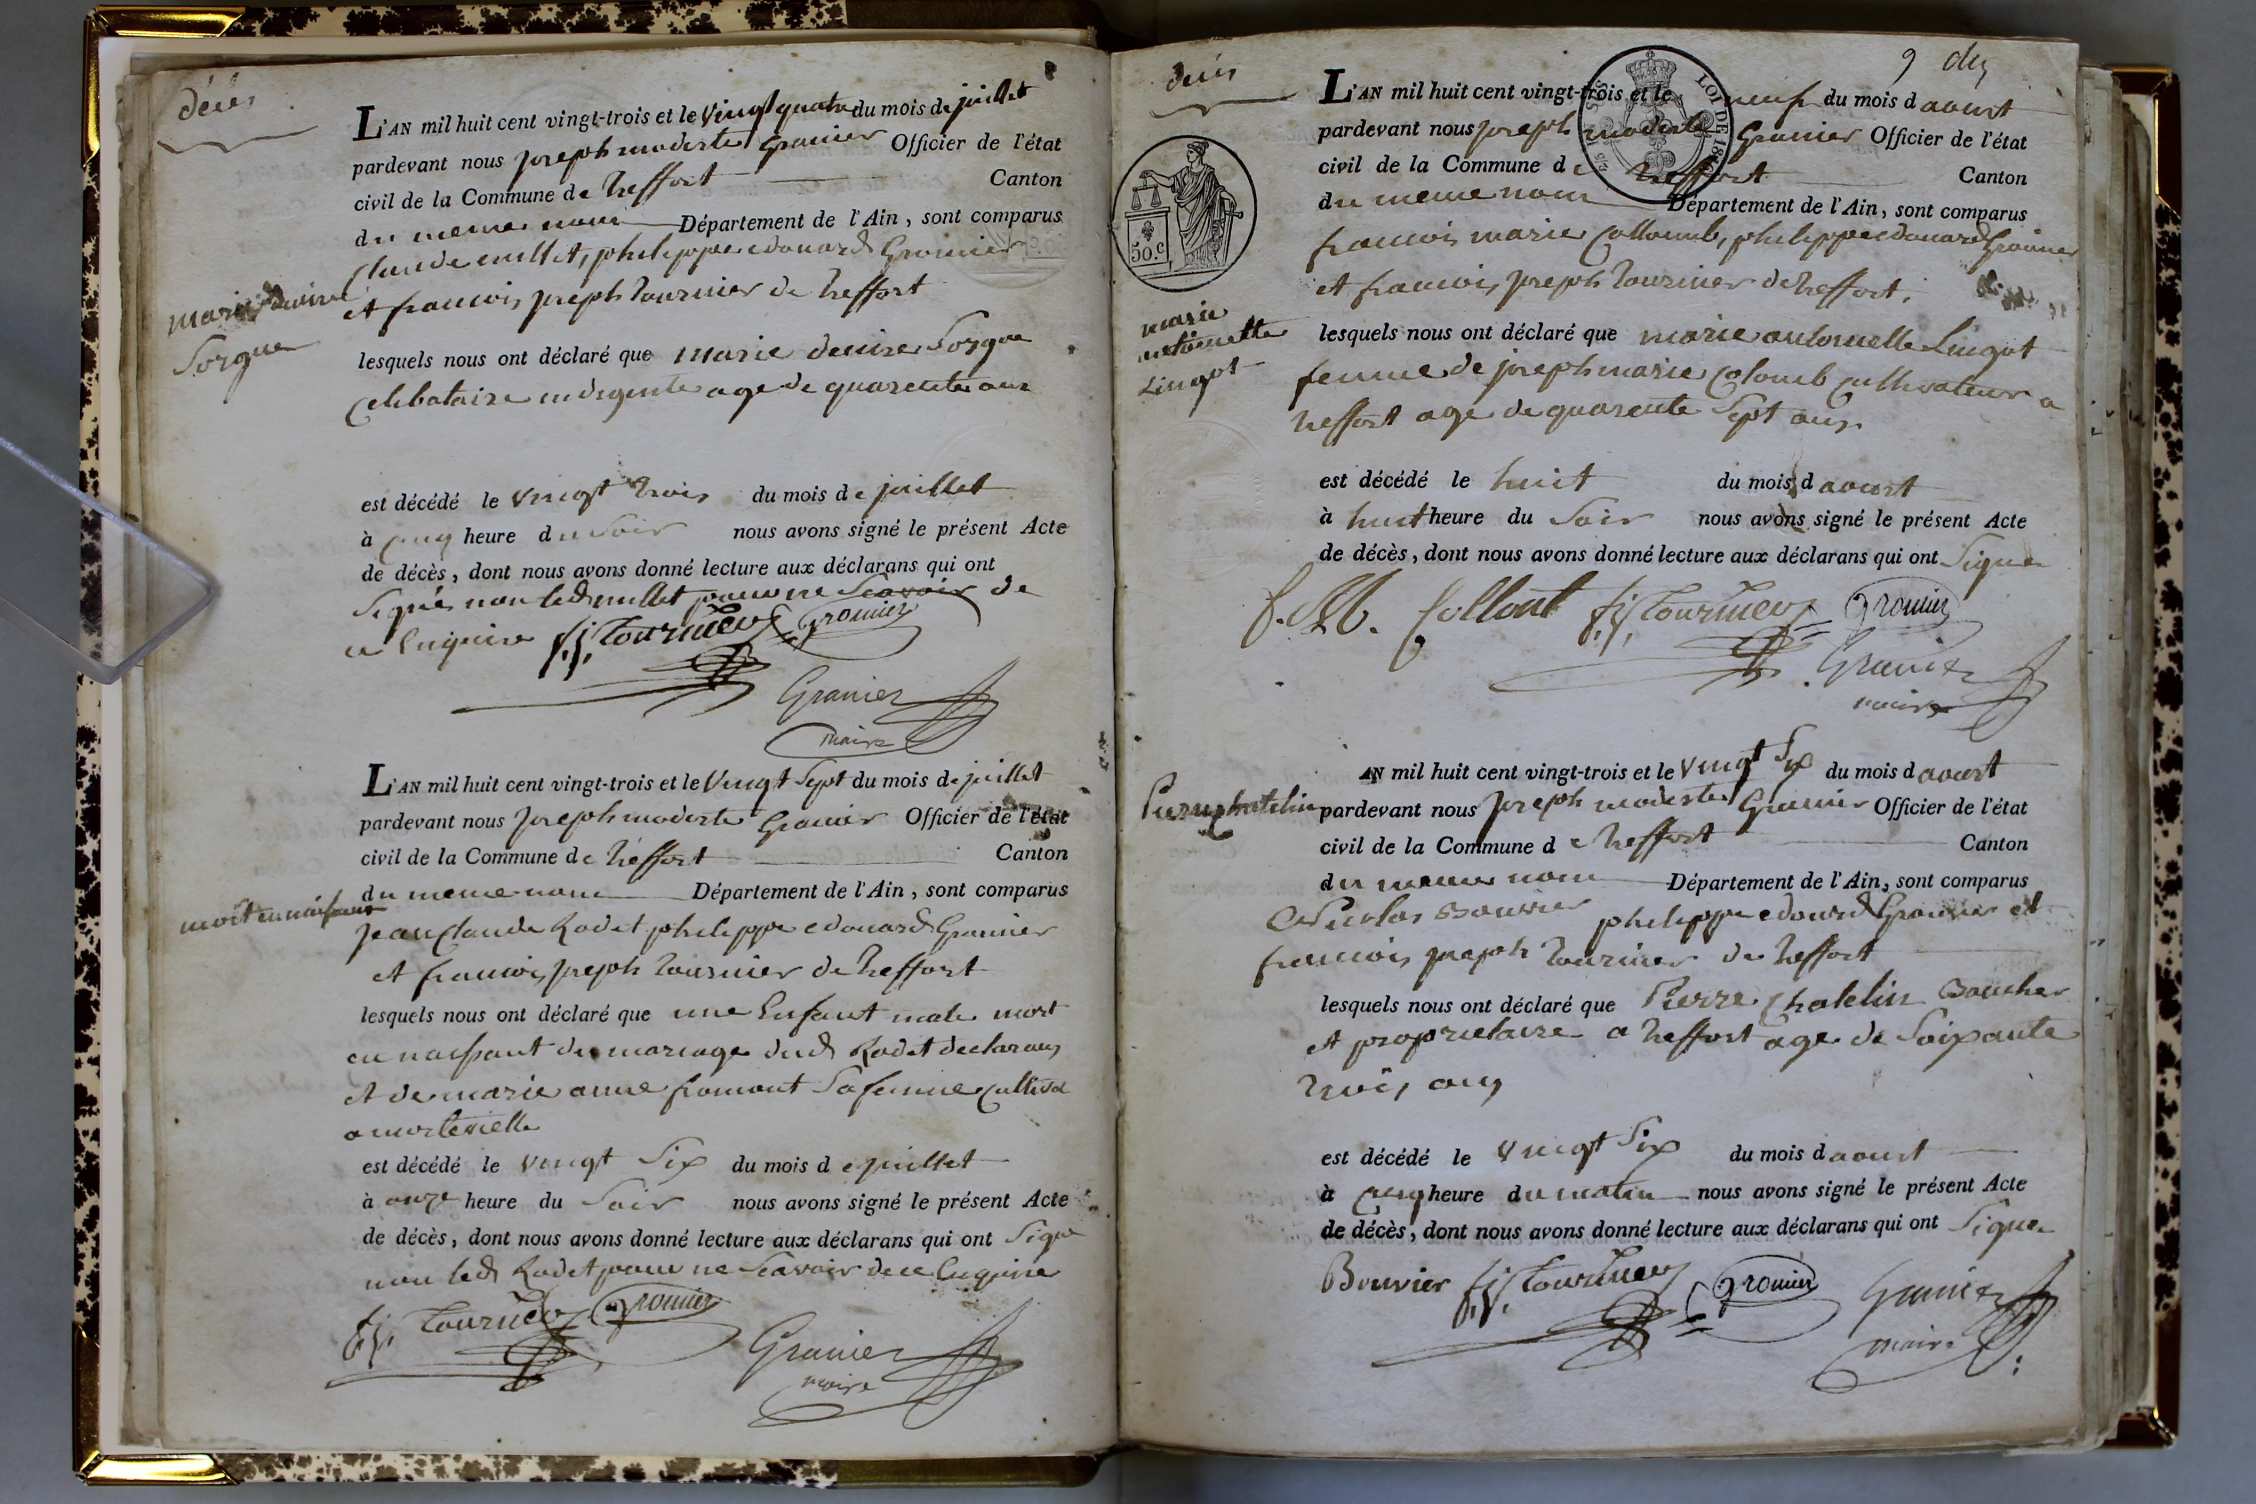 décès
L'AN mil huit cent vingt-trois et le vingt quatre du mois de juillet
pardevant nous joseph modeste Granier Officier de l'état
civil de la Commune de treffort Canton
du meme nom Département de l'Ain, sont comparus
Claude millet, philippe edouard Gromier
et francois joseph tournier de treffort
marie denise
Sorgue
lesquels nous ont déclaré que marie denise Sorgue
celibataire indigente age de quarente ans
est décédé le vingt trois du mois de juillet
à cinq heure du soir nous avons signé le présent Acte
de décès, dont nous avons donné lecture aux déclarans qui ont
Signé non led millet pour ne Scavoir de
ce Enquire f. j. Tournier Gromier
Granier
maire
L'AN mil huit cent vingt-trois et le vingt Sept du mois de juillet
pardevant nous joseph modeste Granier Officier de l'état
civil de la Commune de treffort Canton
du meme nom Département de l'Ain, sont comparus
mort en naissant
jean Claude Rodet philippe edouard Gromier
et francois joseph tournier de treffort
lesquels nous ont déclaré que une Enfant male mort
en naissant du mariage dud Rodet declarans
et de marie anne fromont Sa femme Cultiva
a mortevielle
est décédé le vingt Six du mois de juillet
à onze heure du Soir nous avons signé le présent Acte
de décès, dont nous avons donné lecture aux déclarans qui ont Signe
non led Rodet pour ne Scavoir de ce Enquire
f. j. Tournier Gromier
Granier
maire
décès
9 dix
LOI DE 1816
50. c
L'AN mil huit cent vingt-trois et le neuf du mois d aoust
pardevant nous joseph modeste Granier Officier de l'état
civil de la Commune de treffort Canton
du meme nom Département de l'Ain, sont comparus
francois marie Collomb, philippe edouard Gromier
et francois joseph tournier de treffort.
marie
antoinette
Lingot
lesquels nous ont déclaré que marie antoinette Lingot
femme de joseph marie Colomb cultivateur a
treffort age de quarente Sept ans.
est décédé le huit du mois d aoust
à huit heure du Soir nous avons signé le présent Acte
de décès, dont nous avons donné lecture aux déclarans qui ont Signe
f. M. Collont f. j. Tournier Gromier
Granier
maire
AN mil huit cent vingt-trois et le vingt Six du mois d aoust
Pierre chatelin
pardevant nous joseph modeste Granier Officier de l'état
civil de la Commune de treffort Canton
du meme nom Département de l'Ain, sont comparus
Nicolas Bouvier philippe edouard Gromier et
francois joseph tournier de treffort
lesquels nous ont déclaré que Pierre Chatelin Boucher
et proprietaire a treffort age de Soixante
trois ans
est décédé le vingt Six du mois d aoust
à cinq heure du matin nous avons signé le présent Acte
de décès, dont nous avons donné lecture aux déclarans qui ont Signe
Bouvier f. j. Tournier Gromier Granier
maire